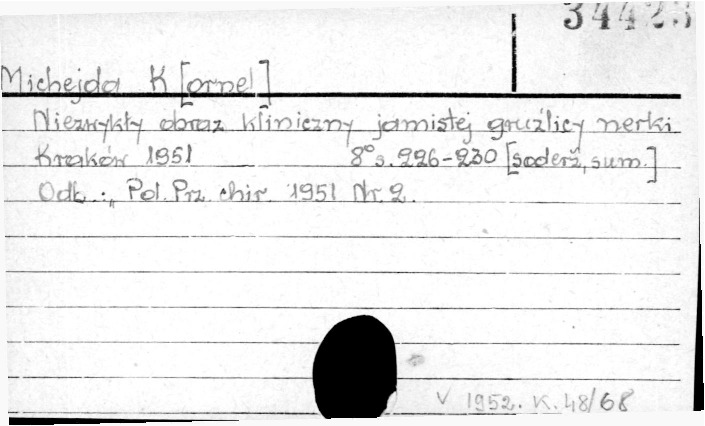 34423
Michejda K[ornel]
Niezwykły obraz kliniczny jamistej gruźlicy nerki
Kraków 1951 8° s. 226-230 [soderż, sum.]
Odb.: „Pol. Prz. chir. 1951 Nr. 2.
V 1952. K. 48/68